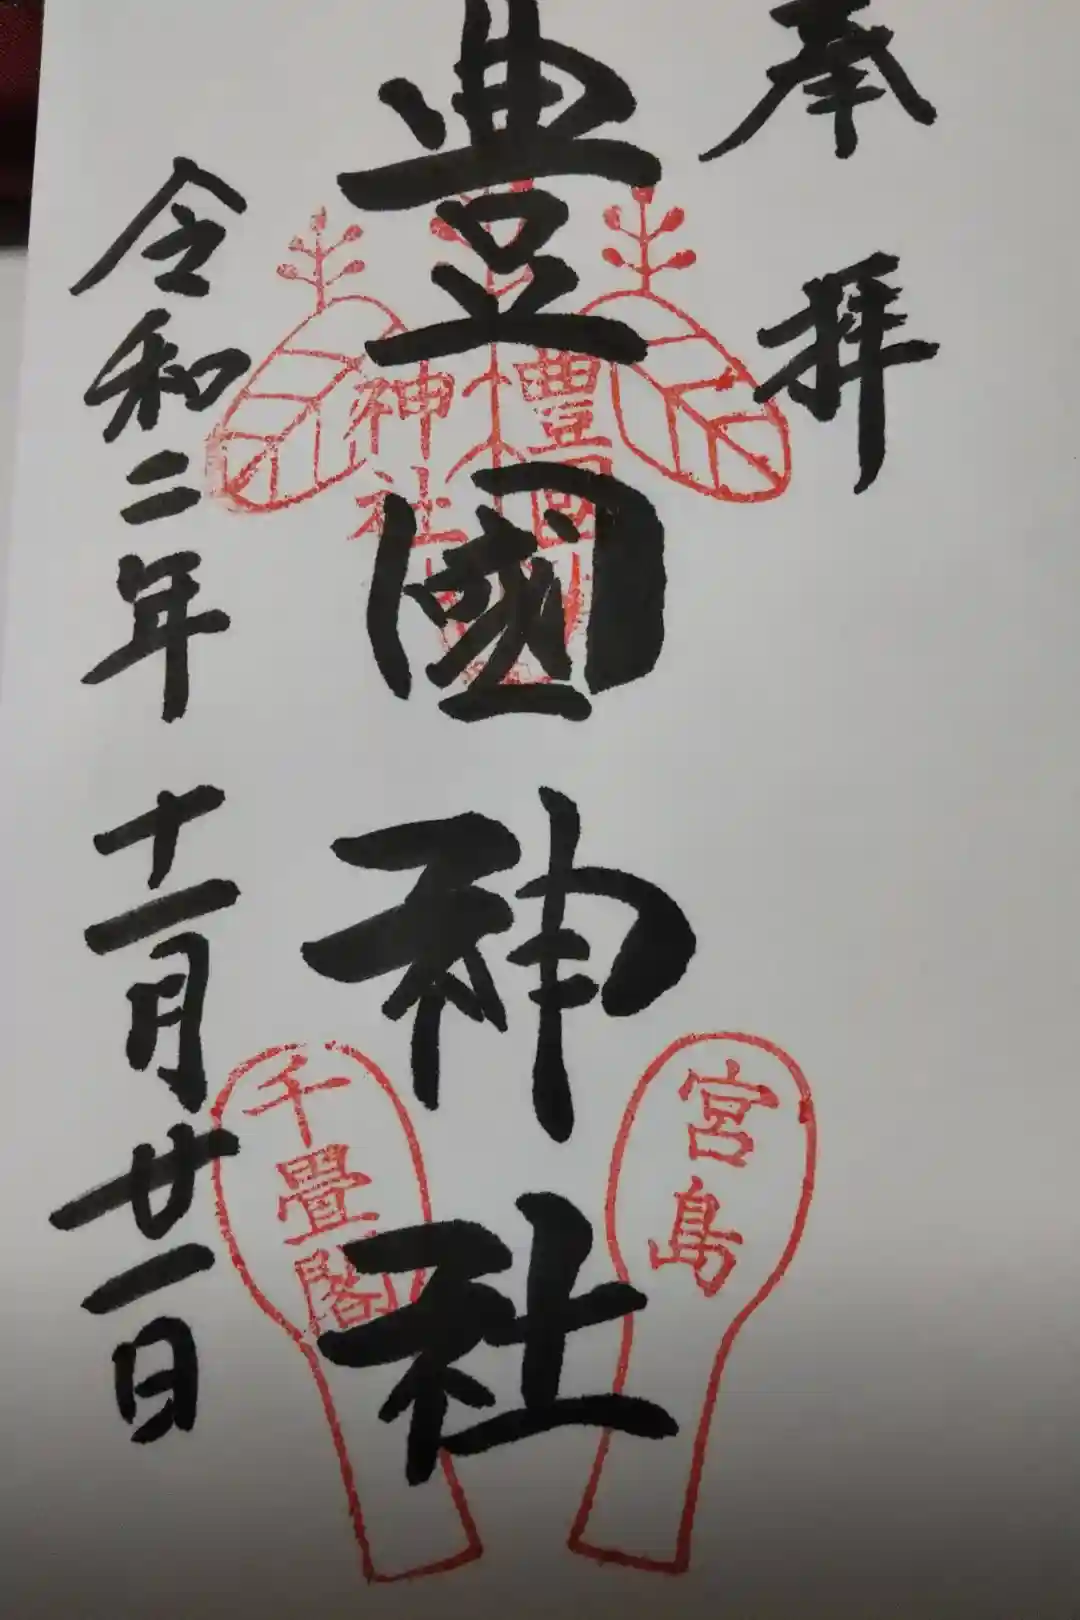 奉拝
豊國神社
令和二年十一月廿一日
豊国
神社
宮島
千畳閣